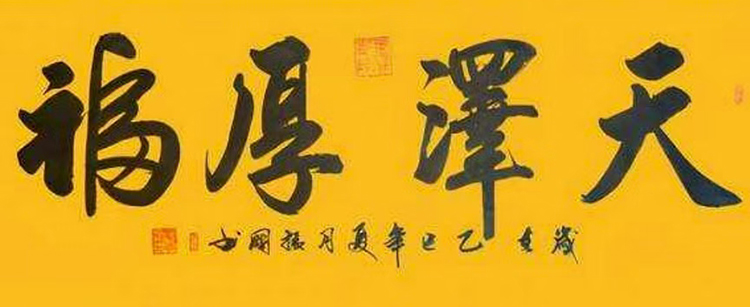 天澤厚福
歲在乙巳年夏月振國书